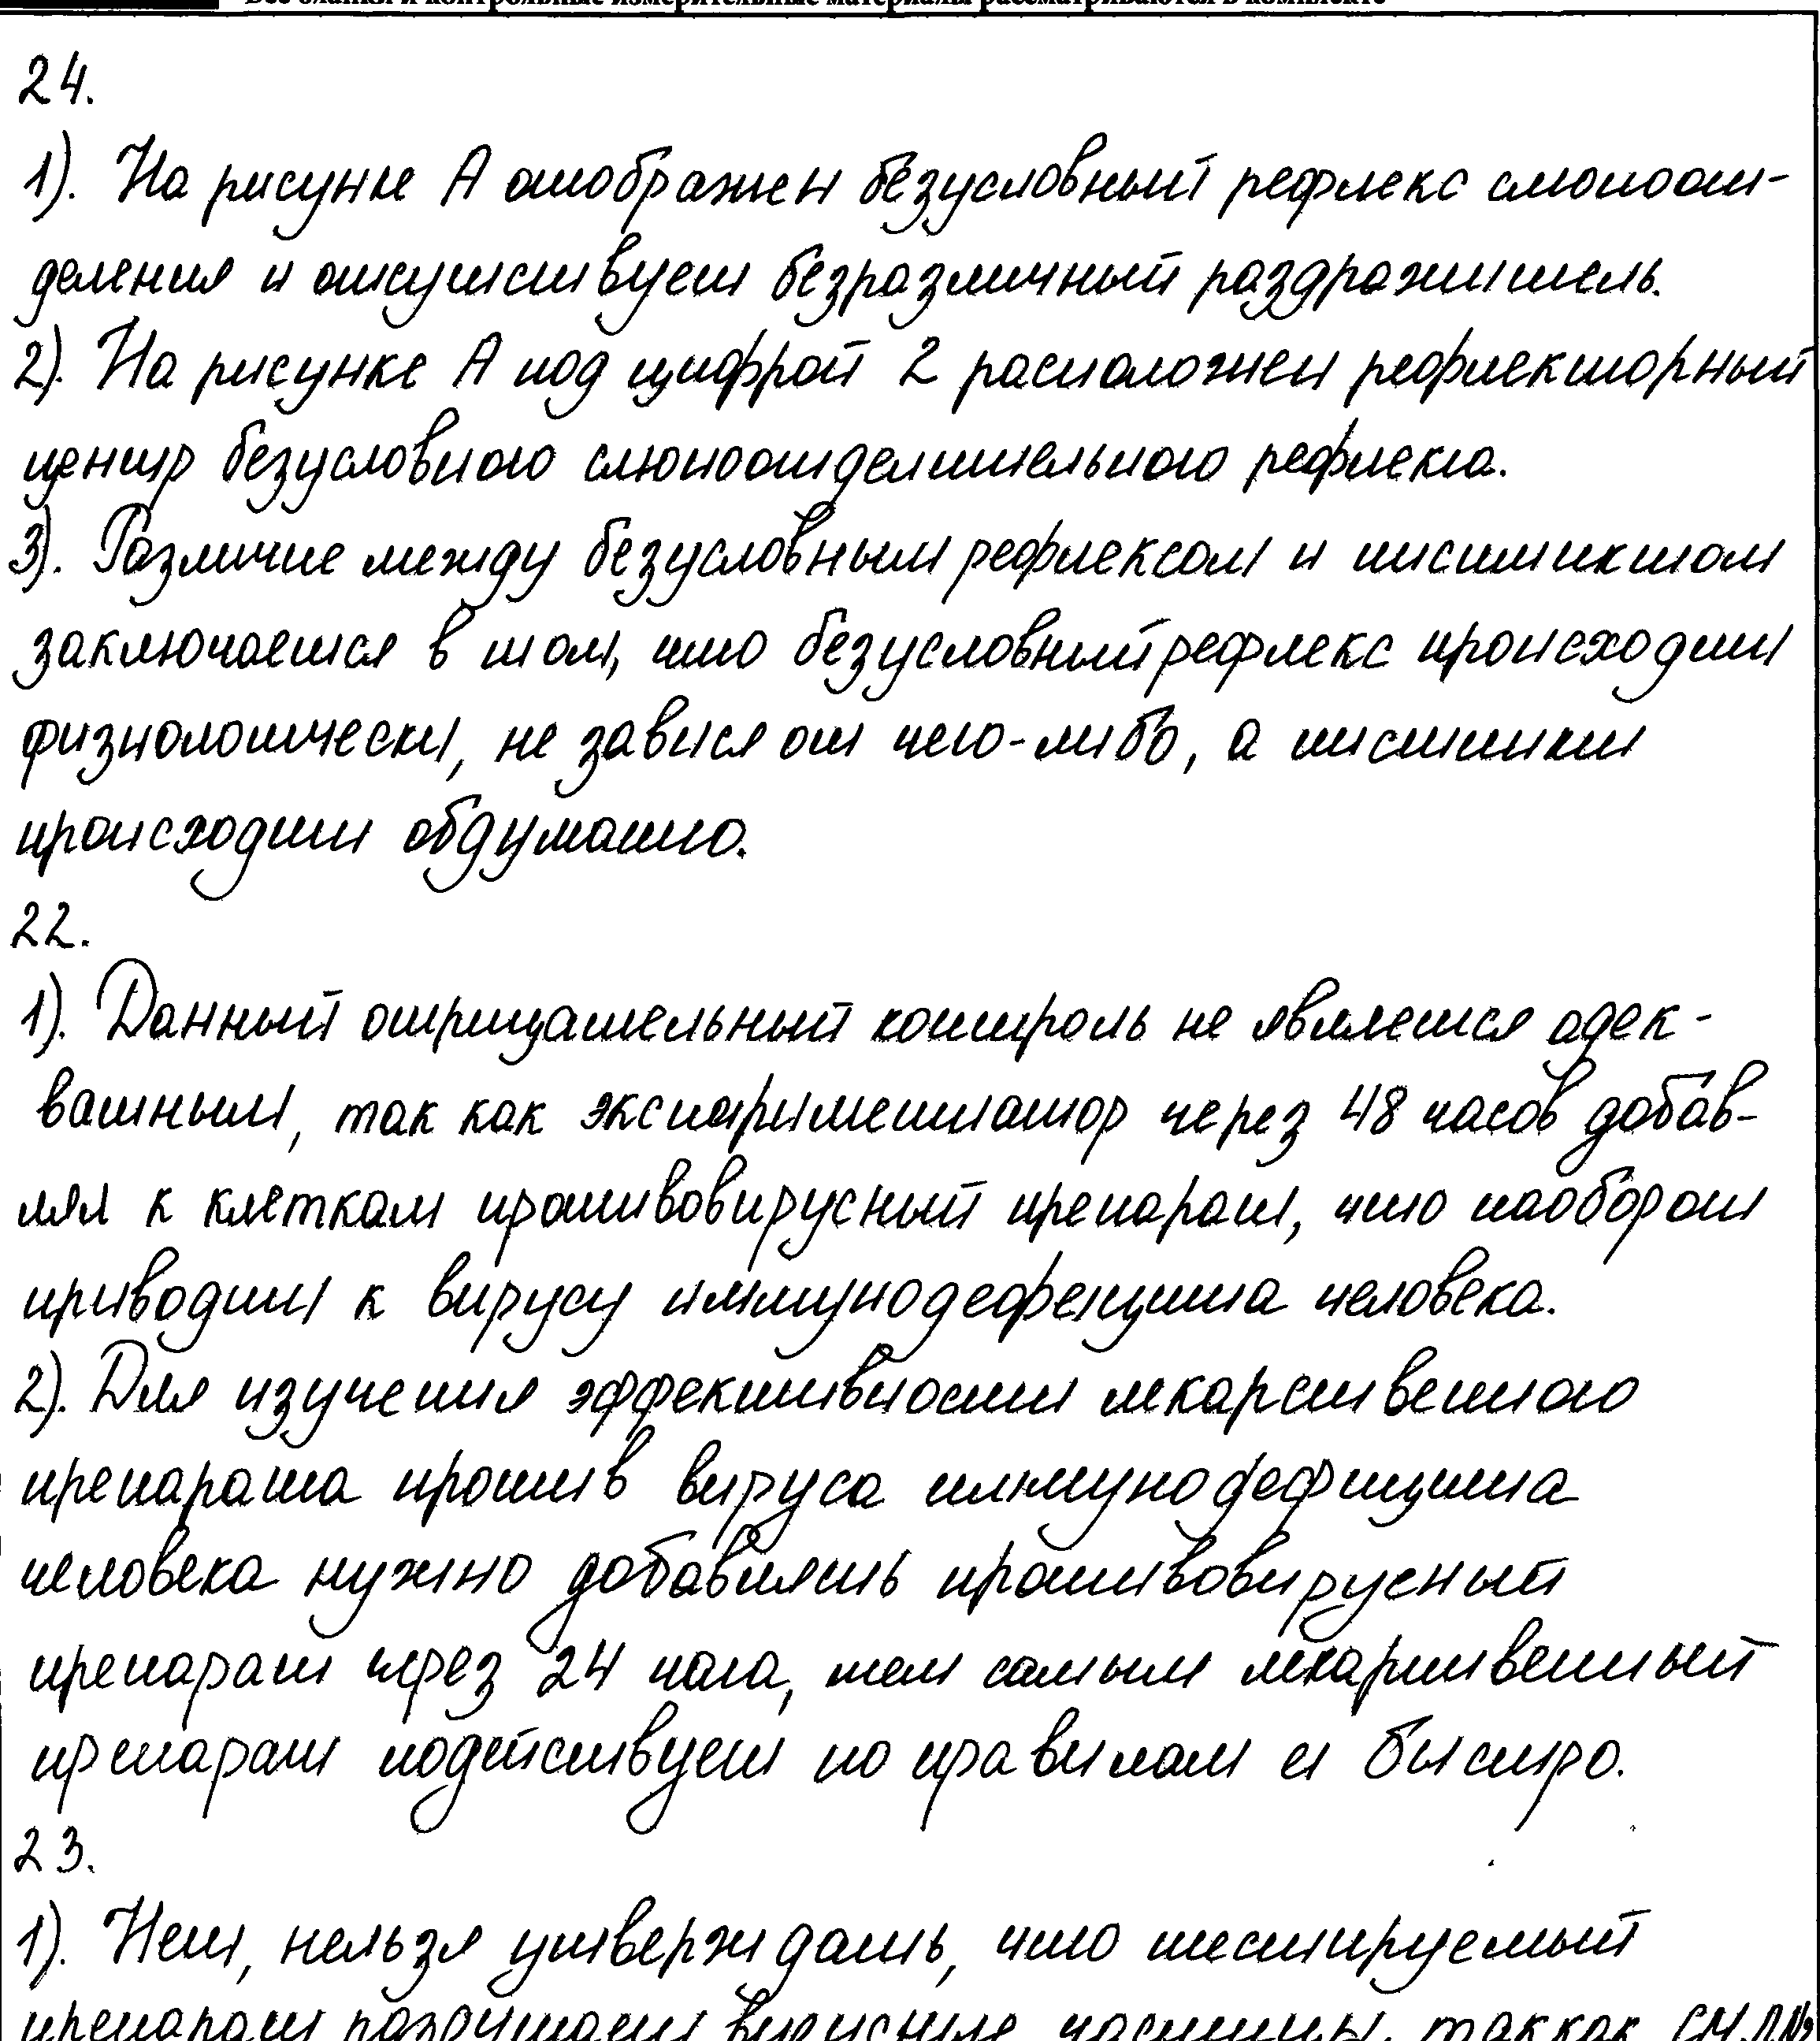 Все бланки и контрольные измерительные материалы рассматриваются в комплекте
24.
1). На рисунке А отображен безусловный рефлекс слюноот-
деления и отсутствует безразличный раздражитель.
2). На рисунке А под цифрой 2 расположен рефлекторный
центр безусловного слюноотделительного рефлекса.
3). Различие между безусловным рефлексом и инстинктом
заключается в том, что безусловный рефлекс происходит
физиологически, не завися от чего-либо, а инстинкт
происходит обдуманно.
22.
1). Данный отрицательный контроль не является адек-
ватным, так как экспериментатор через 48 часов добав-
лял к клеткам противовирусный препарат, что наоборот
приводит к вирусу иммунодефецицита человека.
2). Для изучения эффективности лекарственного
препарата против вируса иммунодефицита
человека нужно добавлять противовирусный
препарат через 24 часа, тем самым лекарственный
препарат подействует по правилам и быстро.
23.
1). Нет, нельзя утверждать, что тестируемый
препарат разрушает вирусные частицы, так как